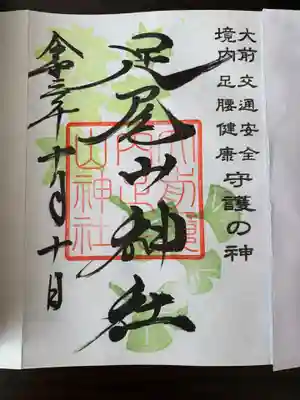 大前 交通安全
境内 足腰健康 守護の神
足尾山神社
大前境
内足尾
山神社
令和三年十月十日